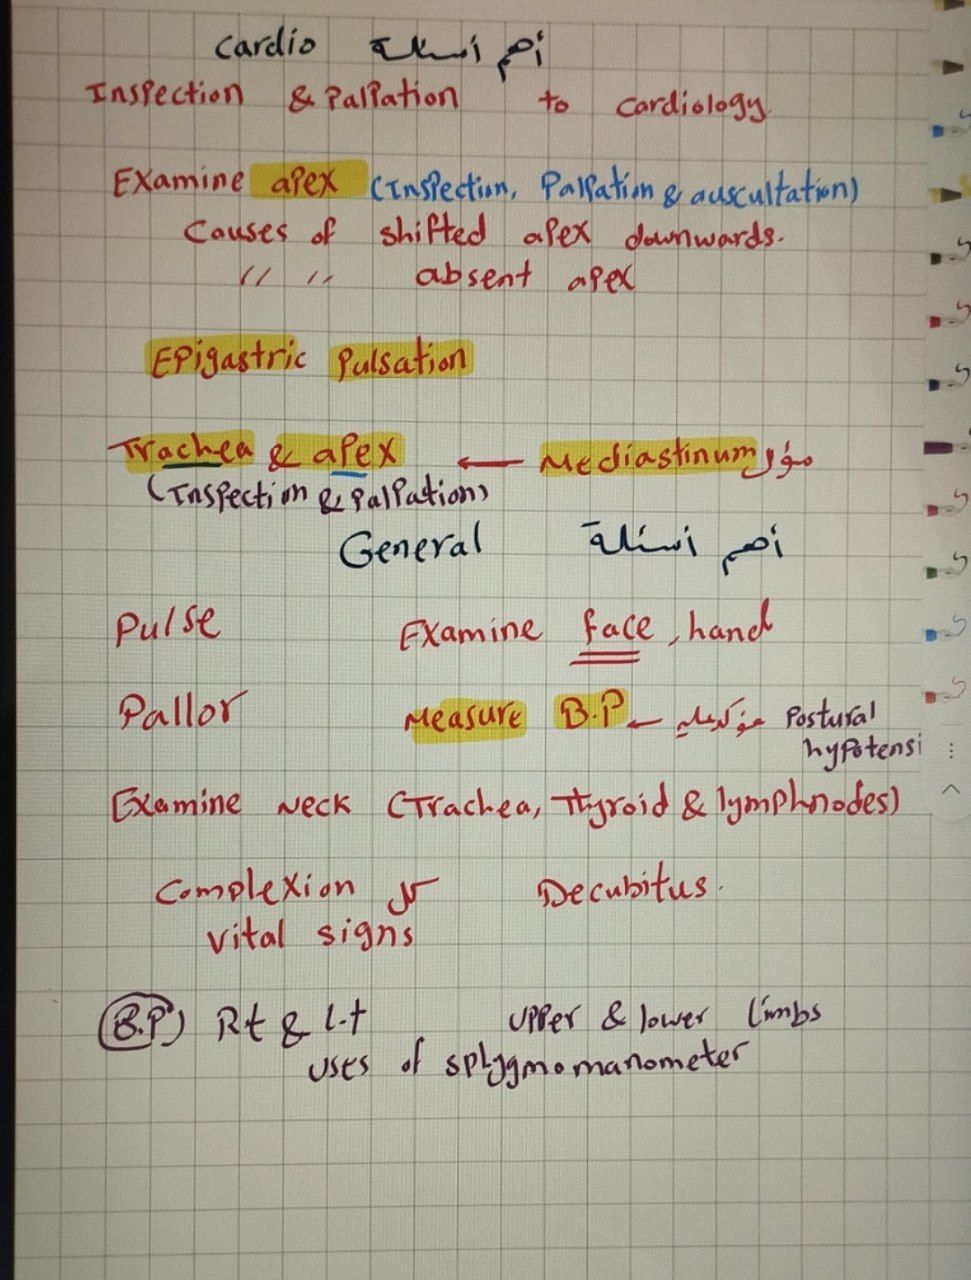 Cardio أهم أسئلة
Inspection & Palpation to cardiology
Examine apex (Inspection, Palpation & auscultation)
Causes of shifted apex downwards.
〃 〃 absent apex
Epigastric Pulsation
Trachea & apex ← Mediastinum
(Inspection & Palpation)
General أهم أسئلة
Pulse Examine face, hand
Pallor Measure B.P ← Postural
hypotensi
Examine Neck (Trachea, Thyroid & lymphnodes)
Complexion كل Decubitus.
vital signs
B.P) Rt & Lt upper & lower limbs
uses of sphygmomanometer